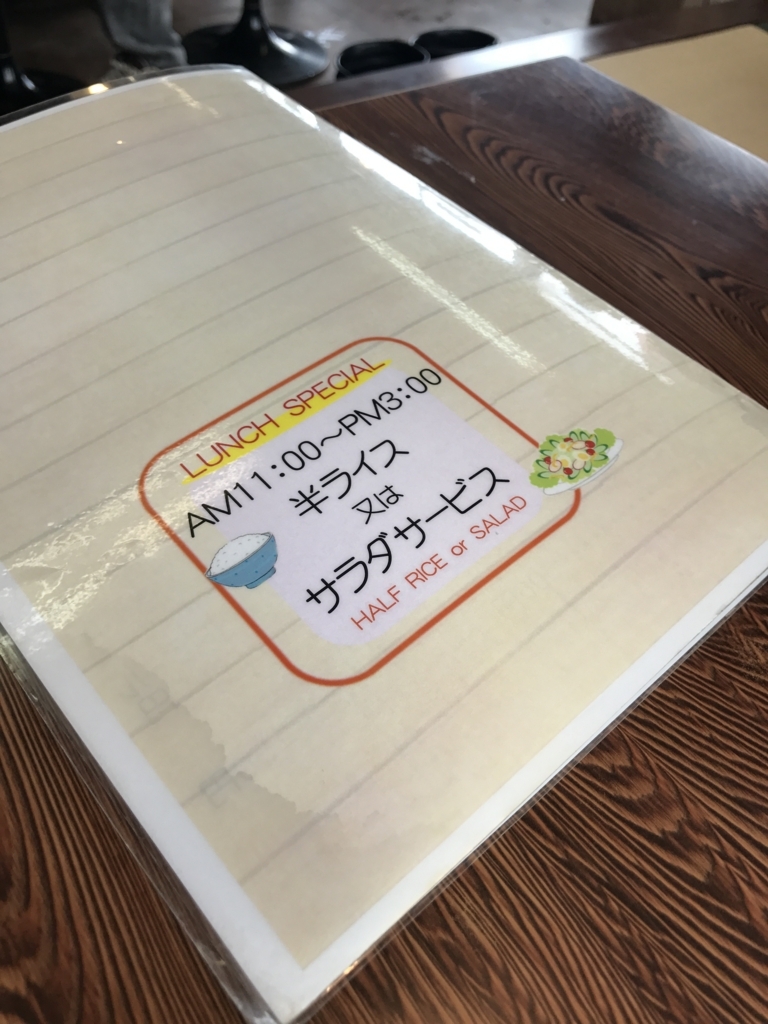 LUNCH SPECIAL
AM11:00～PM3:00
半ライス
又は
サラダサービス
HALF RICE or SALAD